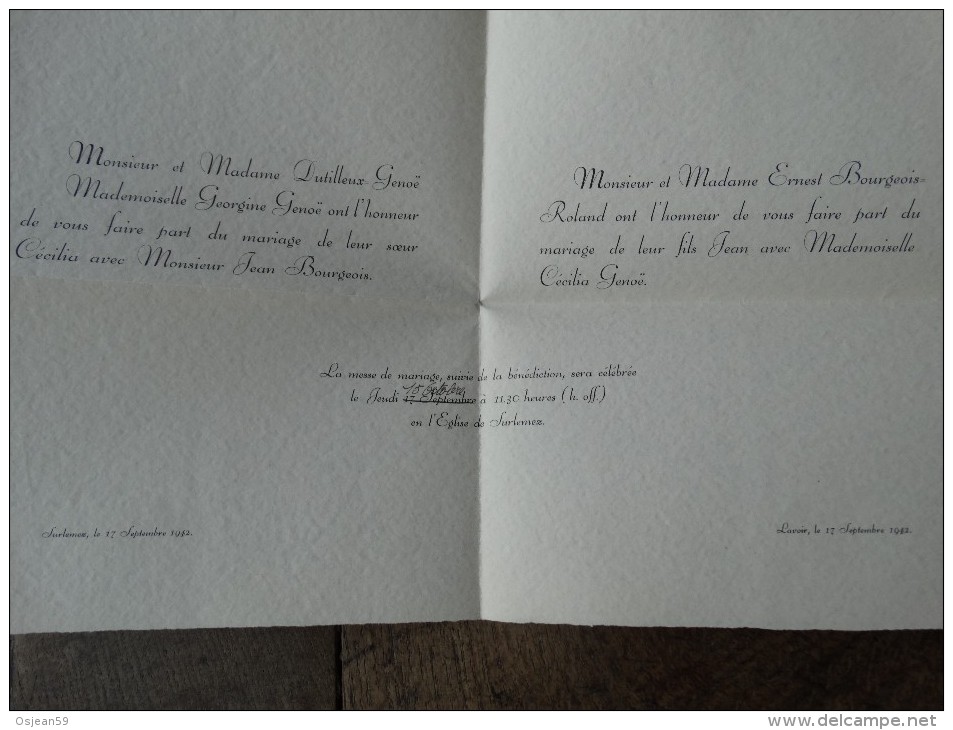 Monsieur et Madame Dutilleux-Genoë
Mademoiselle Georgine Genoë ont l'honneur
de vous faire part du mariage de leur sœur
Cécilia avec Monsieur Jean Bourgeois.
Monsieur et Madame Ernest Bourgeois=
Roland ont l'honneur de vous faire part du
mariage de leur fils Jean avec Mademoiselle
Cécilia Genoë.
La messe de mariage, suivie de la bénédiction, sera célébrée
15 Octobre
le Jeudi 17 Septembre à 11.30 heures (h. off.)
en l'Eglise de Surlemez.
Surlemez, le 17 Septembre 1942.
Lavoir, le 17 Septembre 1942.
Osjean59
www.delcampe.net